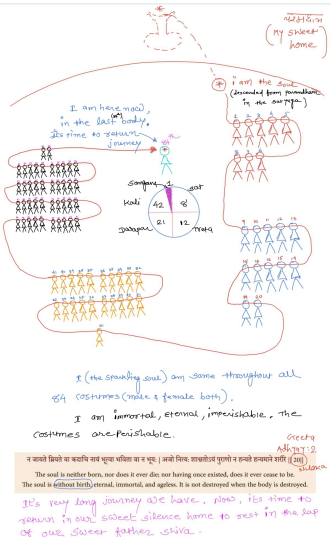 परमधाम
(My sweet
home)
i am the soul
(descended from paramdham
in the satyuga)
I am here now,
in the last body.
(84th)
Its time to return
journey
84th
1 2 3 4 5
6 7 8
Sangam 1 sat
Kali 42 8
21 12
Dwapar Treta
9 10 11 12 13
14 15 16 17 18
19 20
21
I (the sparkling soul) am same throughout all
84 costumes (male & female both).
I am immortal, eternal, imperishable. The
costumes are perishable.
Geeta
Adhyay: 2
shloka
न जायते म्रियते वा कदाचि न्नायं भूत्वा भविता वा न भूयः | अजो नित्यः शाश्वतोऽयं पुराणो न हन्यते हन्यमाने शरीरे || 20||
The soul is neither born, nor does it ever die; nor having once existed, does it ever cease to be.
The soul is without birth, eternal, immortal, and ageless. It is not destroyed when the body is destroyed.
It's very long journey we have. Now, its time to
return in our sweet silence home to rest in the lap
of our sweet father shiva.